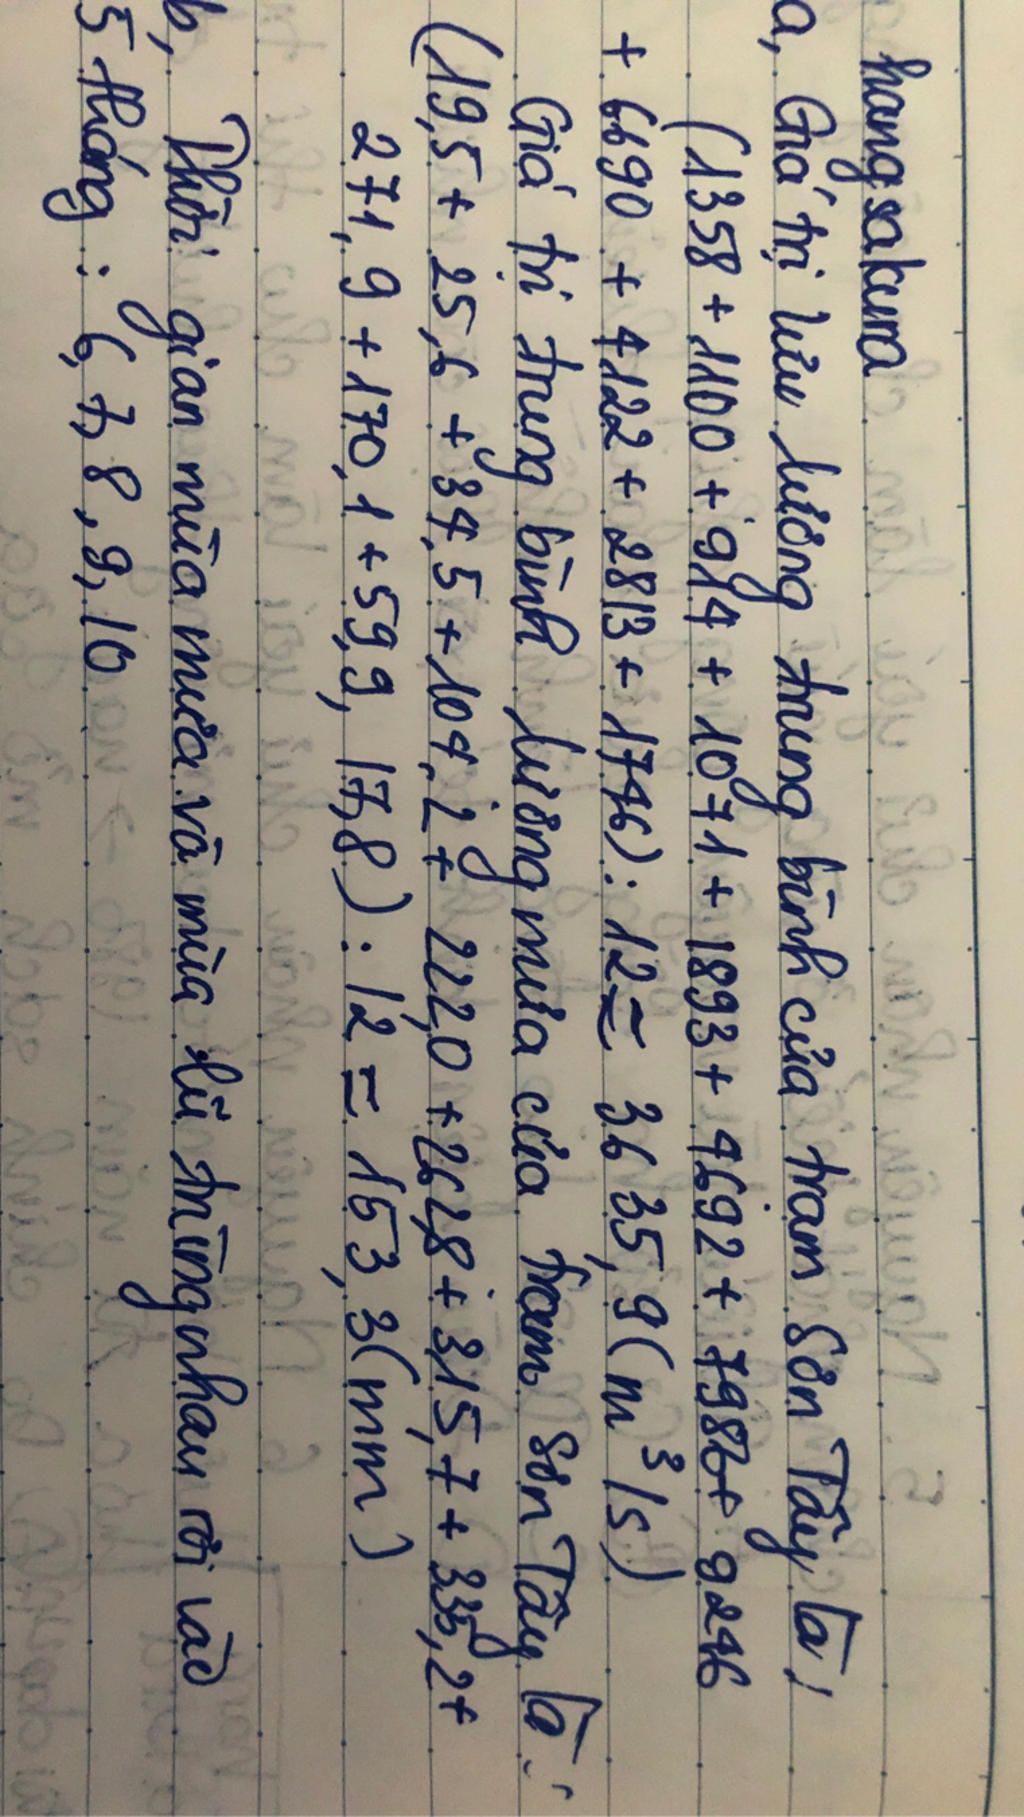 hangsakura
a, Giá trị lưu lượng trung bình của trạm Sơn Tây là:
(1358 + 1100 + 914 + 1071 + 1893 + 4692 + 7986 + 9246
+ 6690 + 4122 + 2813 + 1746) : 12 = 3635,9 (m³/s)
Giá trị trung bình lượng mưa của trạm Sơn Tây là:
(19,5 + 25,6 + 34,5 + 104,2 + 222,0 + 262,8 + 315,7 + 335,2 +
271,9 + 170,1 + 59,9, 17,8) : 12 = 153,3 (mm)
b, Thời gian mùa mưa và mùa lũ trùng nhau rơi vào
5 tháng: 6, 7, 8, 9, 10